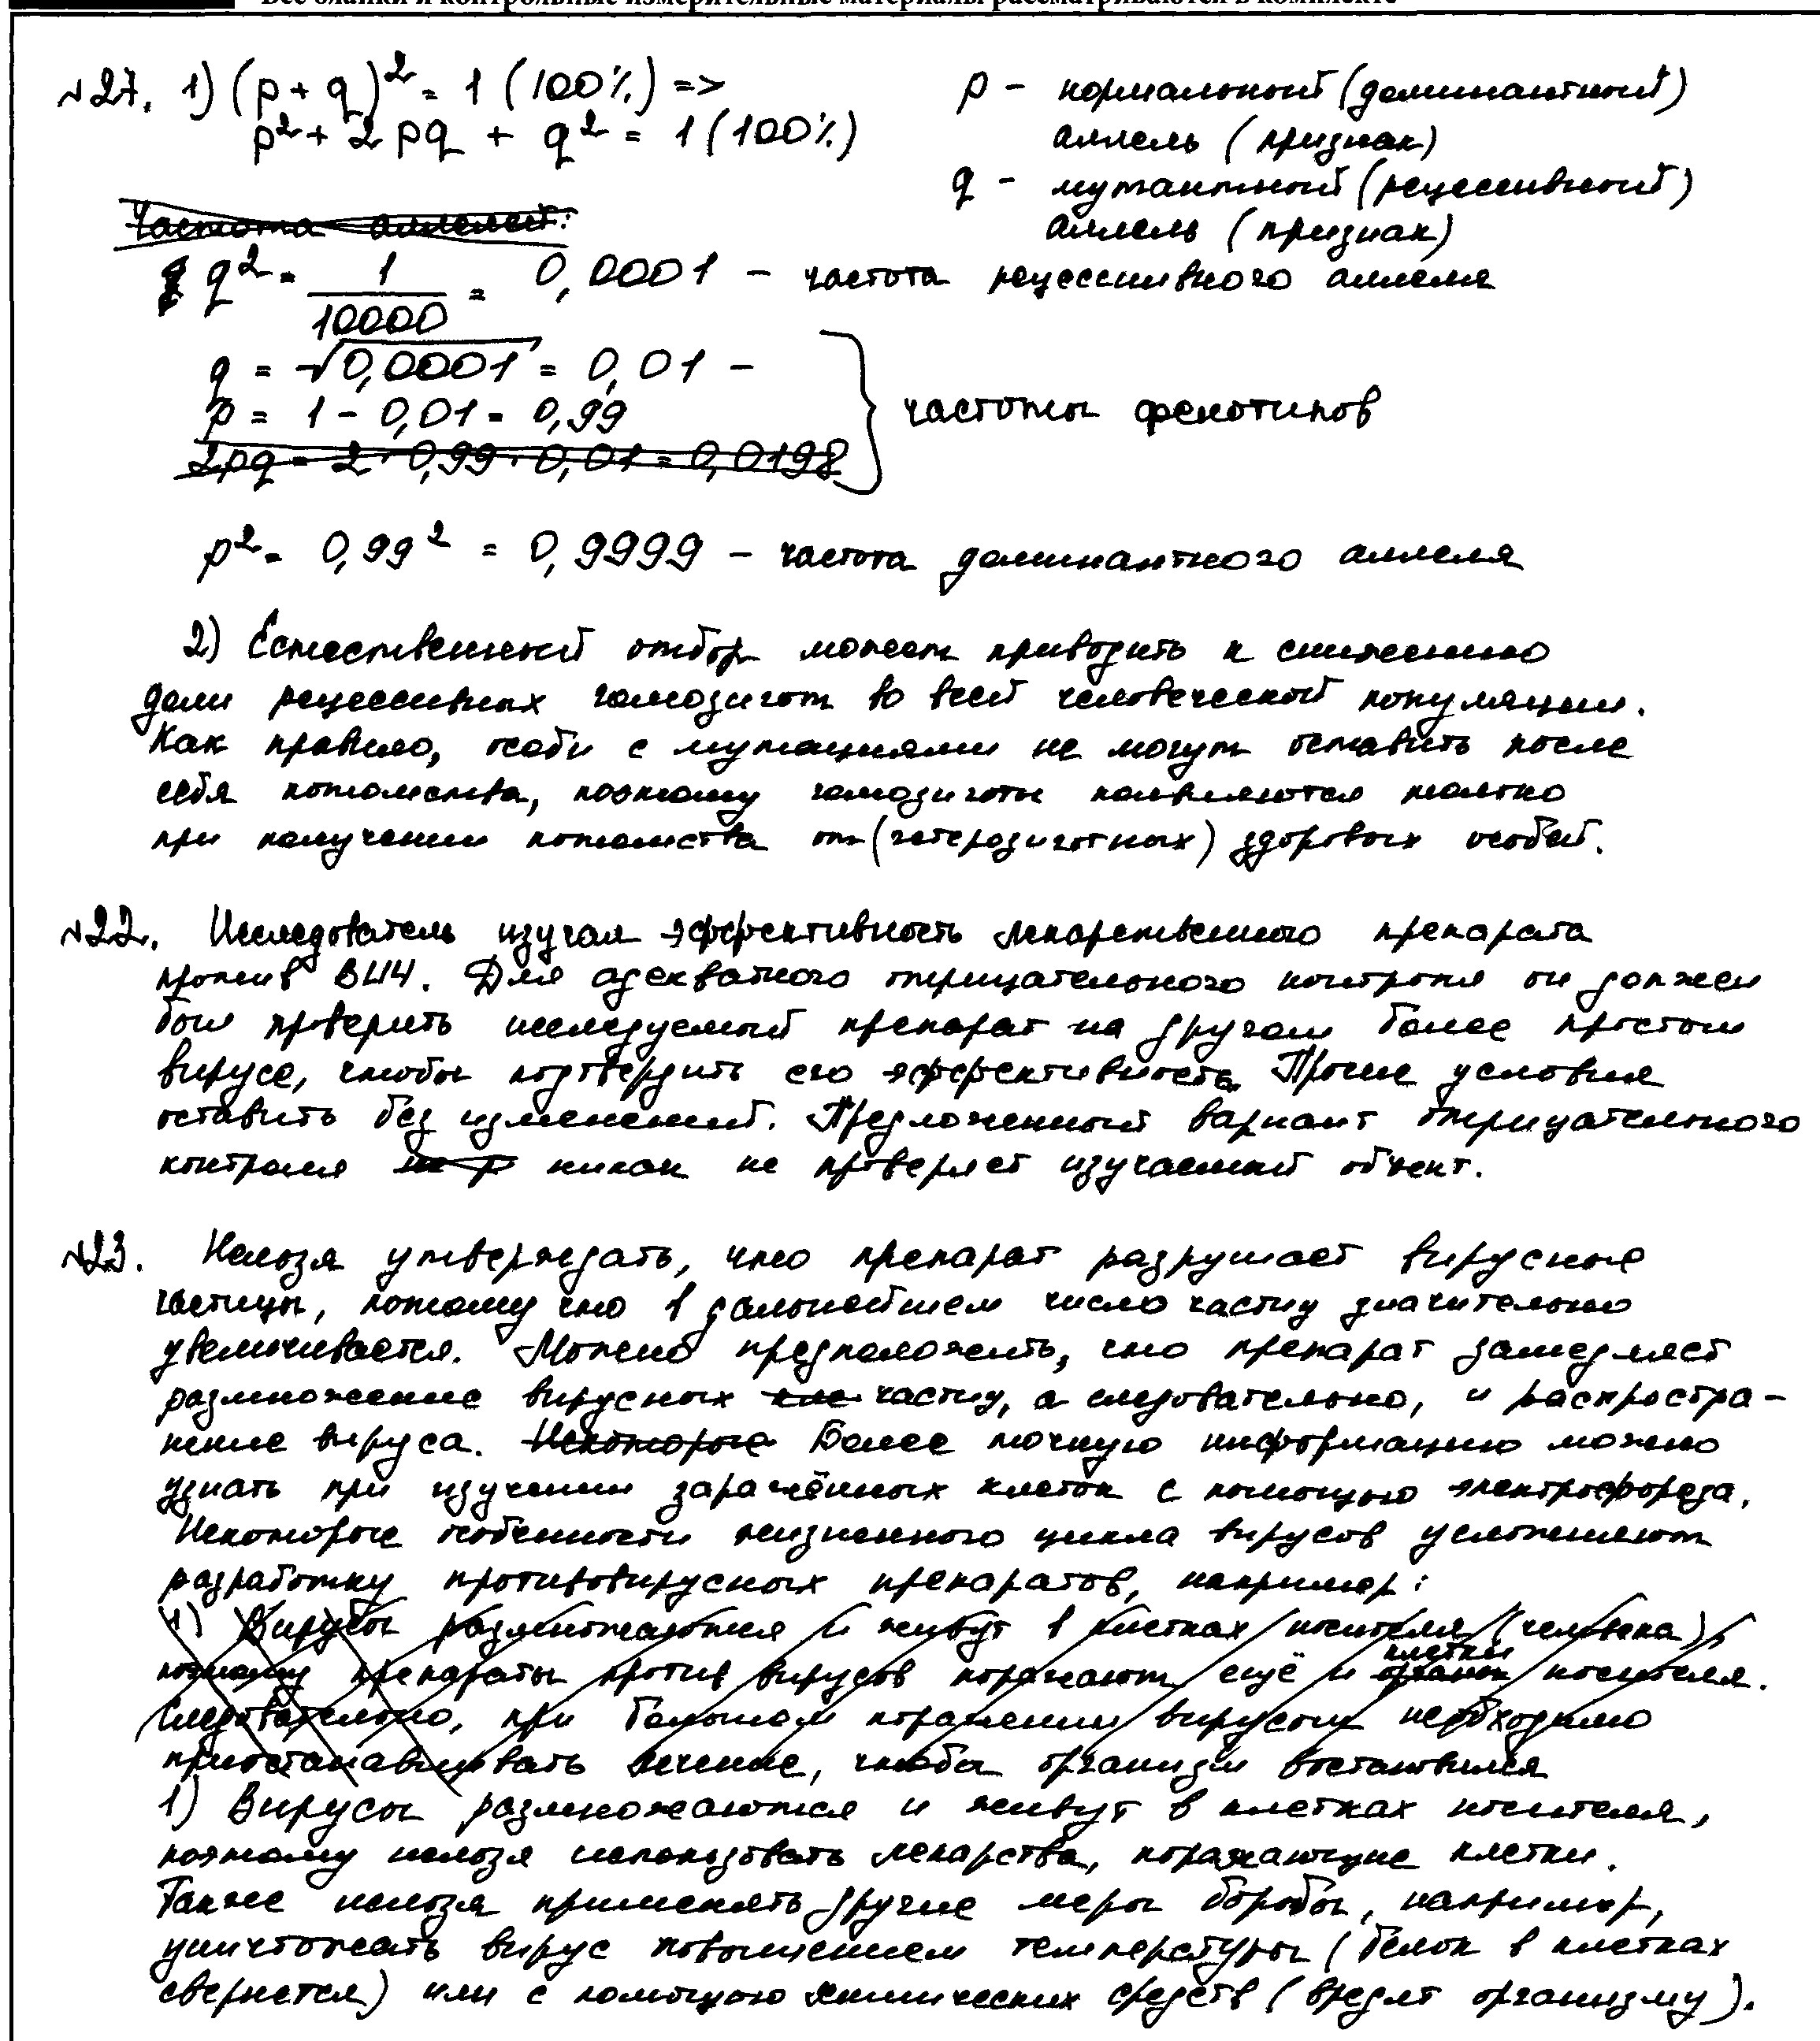 Все бланки и контрольные измерительные материалы рассматриваются в комплекте
№27. 1) (p + q)² = 1 (100%) => p – нормальный (доминантный)
p² + 2pq + q² = 1 (100%) аллель (признак)
q – мутантный (рецессивный)
Частота аллелей: аллель (признак)
q² = 1/10000 = 0,0001 – частота рецессивного аллеля
q = √0,0001 = 0,01 –
p = 1 – 0,01 = 0,99 частоты фенотипов
2pq = 2 · 0,99 · 0,01 = 0,0198
p² = 0,99² = 0,9999 – частота доминантного аллеля
2) Естественный отбор может приводить к снижению
доли рецессивных гомозигот во всей человеческой популяции.
Как правило, особи с мутациями не могут оставить после
себя потомства, поэтому гомозиготы появляются только
при получении потомства от (гетерозиготных) здоровых особей.
№22. Исследователь изучал эффективность лекарственного препарата
против ВИЧ. Для адекватного отрицательного контроля он должен
был проверить исследуемый препарат на другом более простом
вирусе, чтобы подтвердить его эффективность. Прочие условия
оставить без изменений. Предложенный вариант отрицательного
контроля не р никак не проверяет изучаемый объект.
№23. Нельзя утверждать, что препарат разрушает вирусные
частицы, потому что в дальнейшем число частиц значительно
увеличивается. Можно предположить, что препарат замедляет
размножение вирусных кле частиц, а следовательно, и распростра-
нение вируса. Некоторые Более точную информацию можно
узнать при изучении заражённых клеток с помощью электрофореза.
Некоторые особенности жизненного цикла вирусов усложняют
разработку противовирусных препаратов, например:
1) Вирусы размножаются и живут в клетках носителя (человека),
поэтому препараты против вирусов поражают ещё и клетки носителя.
Следовательно, при большом поражении вирусом необходимо
приостанавливать лечение, чтобы организм востановился
1) Вирусы размножаются и живут в клетках носителя,
поэтому нельзя использовать лекарства, поражающие клетки.
Также нельзя применять другие меры борьбы, например,
уничтожать вирус повышением температуры (белок в клетках
свернется) или с помощью химических средств (вредят организму).